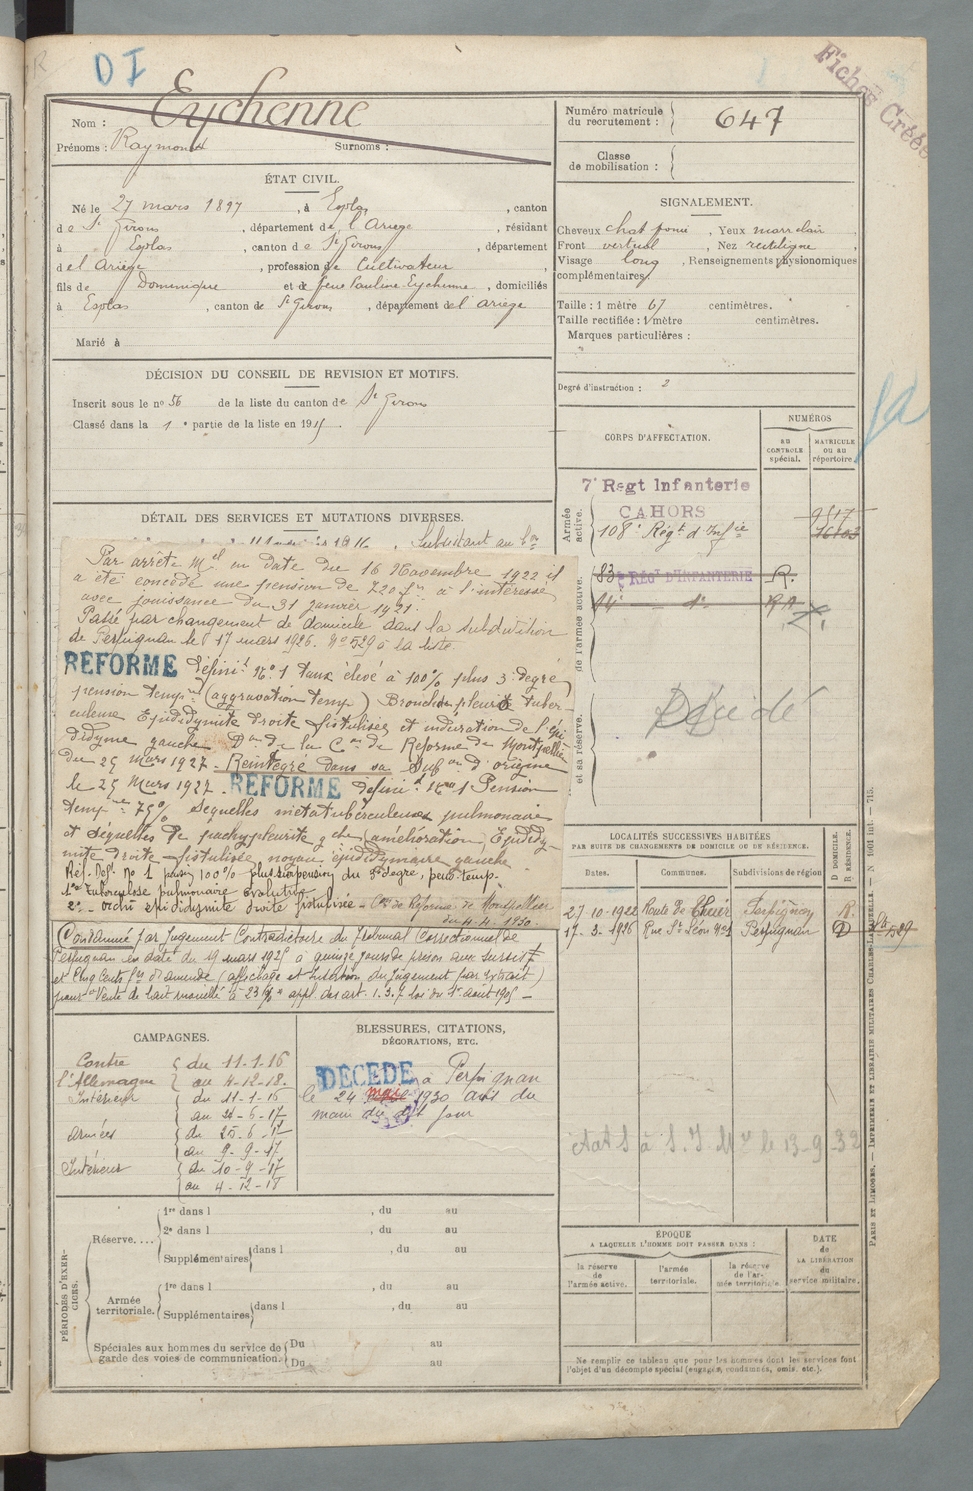 D I
Fiches Créées
Nom : Eychenne
Prénoms : Raymond Surnoms :
Numéro matricule du recrutement : 647
Classe de mobilisation :
ÉTAT CIVIL.
Né le 27 mars 1897, à Esplas, canton
de St Girons, département de l'Ariège, résidant
à Esplas, canton de St Girons, département
de l'Ariège, profession de Cultivateur
fils de Dominique et de feue Pauline Eychenne, domiciliés
à Esplas, canton de St Girons, département de l'Ariège
Marié à
SIGNALEMENT.
Cheveux chat foncé, Yeux marr clair,
Front vertical, Nez rectiligne,
Visage long, Renseignements physionomiques
complémentaires
Taille : 1 mètre 67 centimètres.
Taille rectifiée : 1 mètre centimètres.
Marques particulières :
Degré d'instruction : 2
DÉCISION DU CONSEIL DE REVISION ET MOTIFS.
Inscrit sous le no 56 de la liste du canton de St Girons
Classé dans la 1e partie de la liste en 191
DÉTAIL DES SERVICES ET MUTATIONS DIVERSES.
Par arrêté Mel en date du 16 Novembre 1922 il
a été concédé une pension de 720 frs à l'intéressé
avec jouissance du 31 janvier 1921.
Passé par changement de domicile dans la subdivision
de Perpignan le 17 mars 1926. No 529 à la liste.
RÉFORMÉ Définit No 1 taux élevé à 100% plus 3e degré
pension tempre (aggravation temp) Broncho pleurite tuber-
culeuse Epididymite droite fistulisée et induration de l'épi
didyme gauche Don de la Con de Réforme de Montpellier
du 25 Mars 1927. Réintégré dans sa Subon d'origine
le 25 Mars 1927. RÉFORMÉ définit No 1 Pension
tempre 75% Séquelles pulmonaire
et séquelles de pachypleurite gche (amélioration) Epididy-
mite droite fistulisée noyau épididymaire gauche
Réf. Def. No 1 pension 100% plus suspension du 3e degré, pens. temp.
1o Tuberculose pulmonaire évolutive
2o - orchi epididymite droite fistulisée - Con de Réforme de Montpellier
du 4.4.1930.
Condamné par Jugement Contradictoire du Tribunal Correctionnel de
Perpignan en date du 19 mars 1925 à quinze jours de prison avec sursis
et Cinq Cents frs d'amende (affichage et Insertion du Jugement par Extrait)
pour Vente de lait mouillé à 23% appl. des art. 1.3.7 loi du 1er août 1905 -
CORPS D'AFFECTATION.
NUMÉROS
AU CONTROLE spécial.
MATRICULE ou au répertoire.
Armée active.
7e Régt Infanterie
CAHORS
108e Régt d'Infie
de l'armée active.
83e RÉGT D'INFANTERIE R.
14e do
et sa réserve.
Décédé
LOCALITÉS SUCCESSIVES HABITÉES
PAR SUITE DE CHANGEMENTS DE DOMICILE OU DE RÉSIDENCE.
Dates. Communes. Subdivisions de région D DOMICILE. R RÉSIDENCE.
27-10-1922 Route de Thuir Perpignan R.
17-3-1926 Rue St Léon No 1 Perpignan D
CAMPAGNES.
Contre l'Allemagne du 11-1-16
au 4-12-18.
Intérieur du 11-1-16
au 24-6-17
Armées du 25-6-17
au 9-9-17
Intérieur du 10-9-17
au 4-12-18
BLESSURES, CITATIONS,
DÉCORATIONS, ETC.
DÉCÉDÉ à Perpignan
le 24 mai 1930 avis du
maire du dit jour
PÉRIODES D'EXERCICES.
Réserve.... 1re dans l , du au
2e dans l , du au
Supplémentaires dans l , du au
Armée territoriale. 1re dans l , du au
Supplémentaires dans l , du au
Spéciales aux hommes du service de garde des voies de communication. Du au
Du au
ÉPOQUE
A LAQUELLE L'HOMME DOIT PASSER DANS :
la réserve de l'armée active.
l'armée territoriale.
la réserve de l'armée territoriale
DATE de LA LIBÉRATION du service militaire.
Ne remplir ce tableau que pour les hommes dont les services font
l'objet d'un décompte spécial (engagés, condamnés, omis, etc.).
PARIS ET LIMOGES. — IMPRIMERIE ET LIBRAIRIE MILITAIRES CHARLES-LAVAUZELLE. — N 1001 int. — 715.